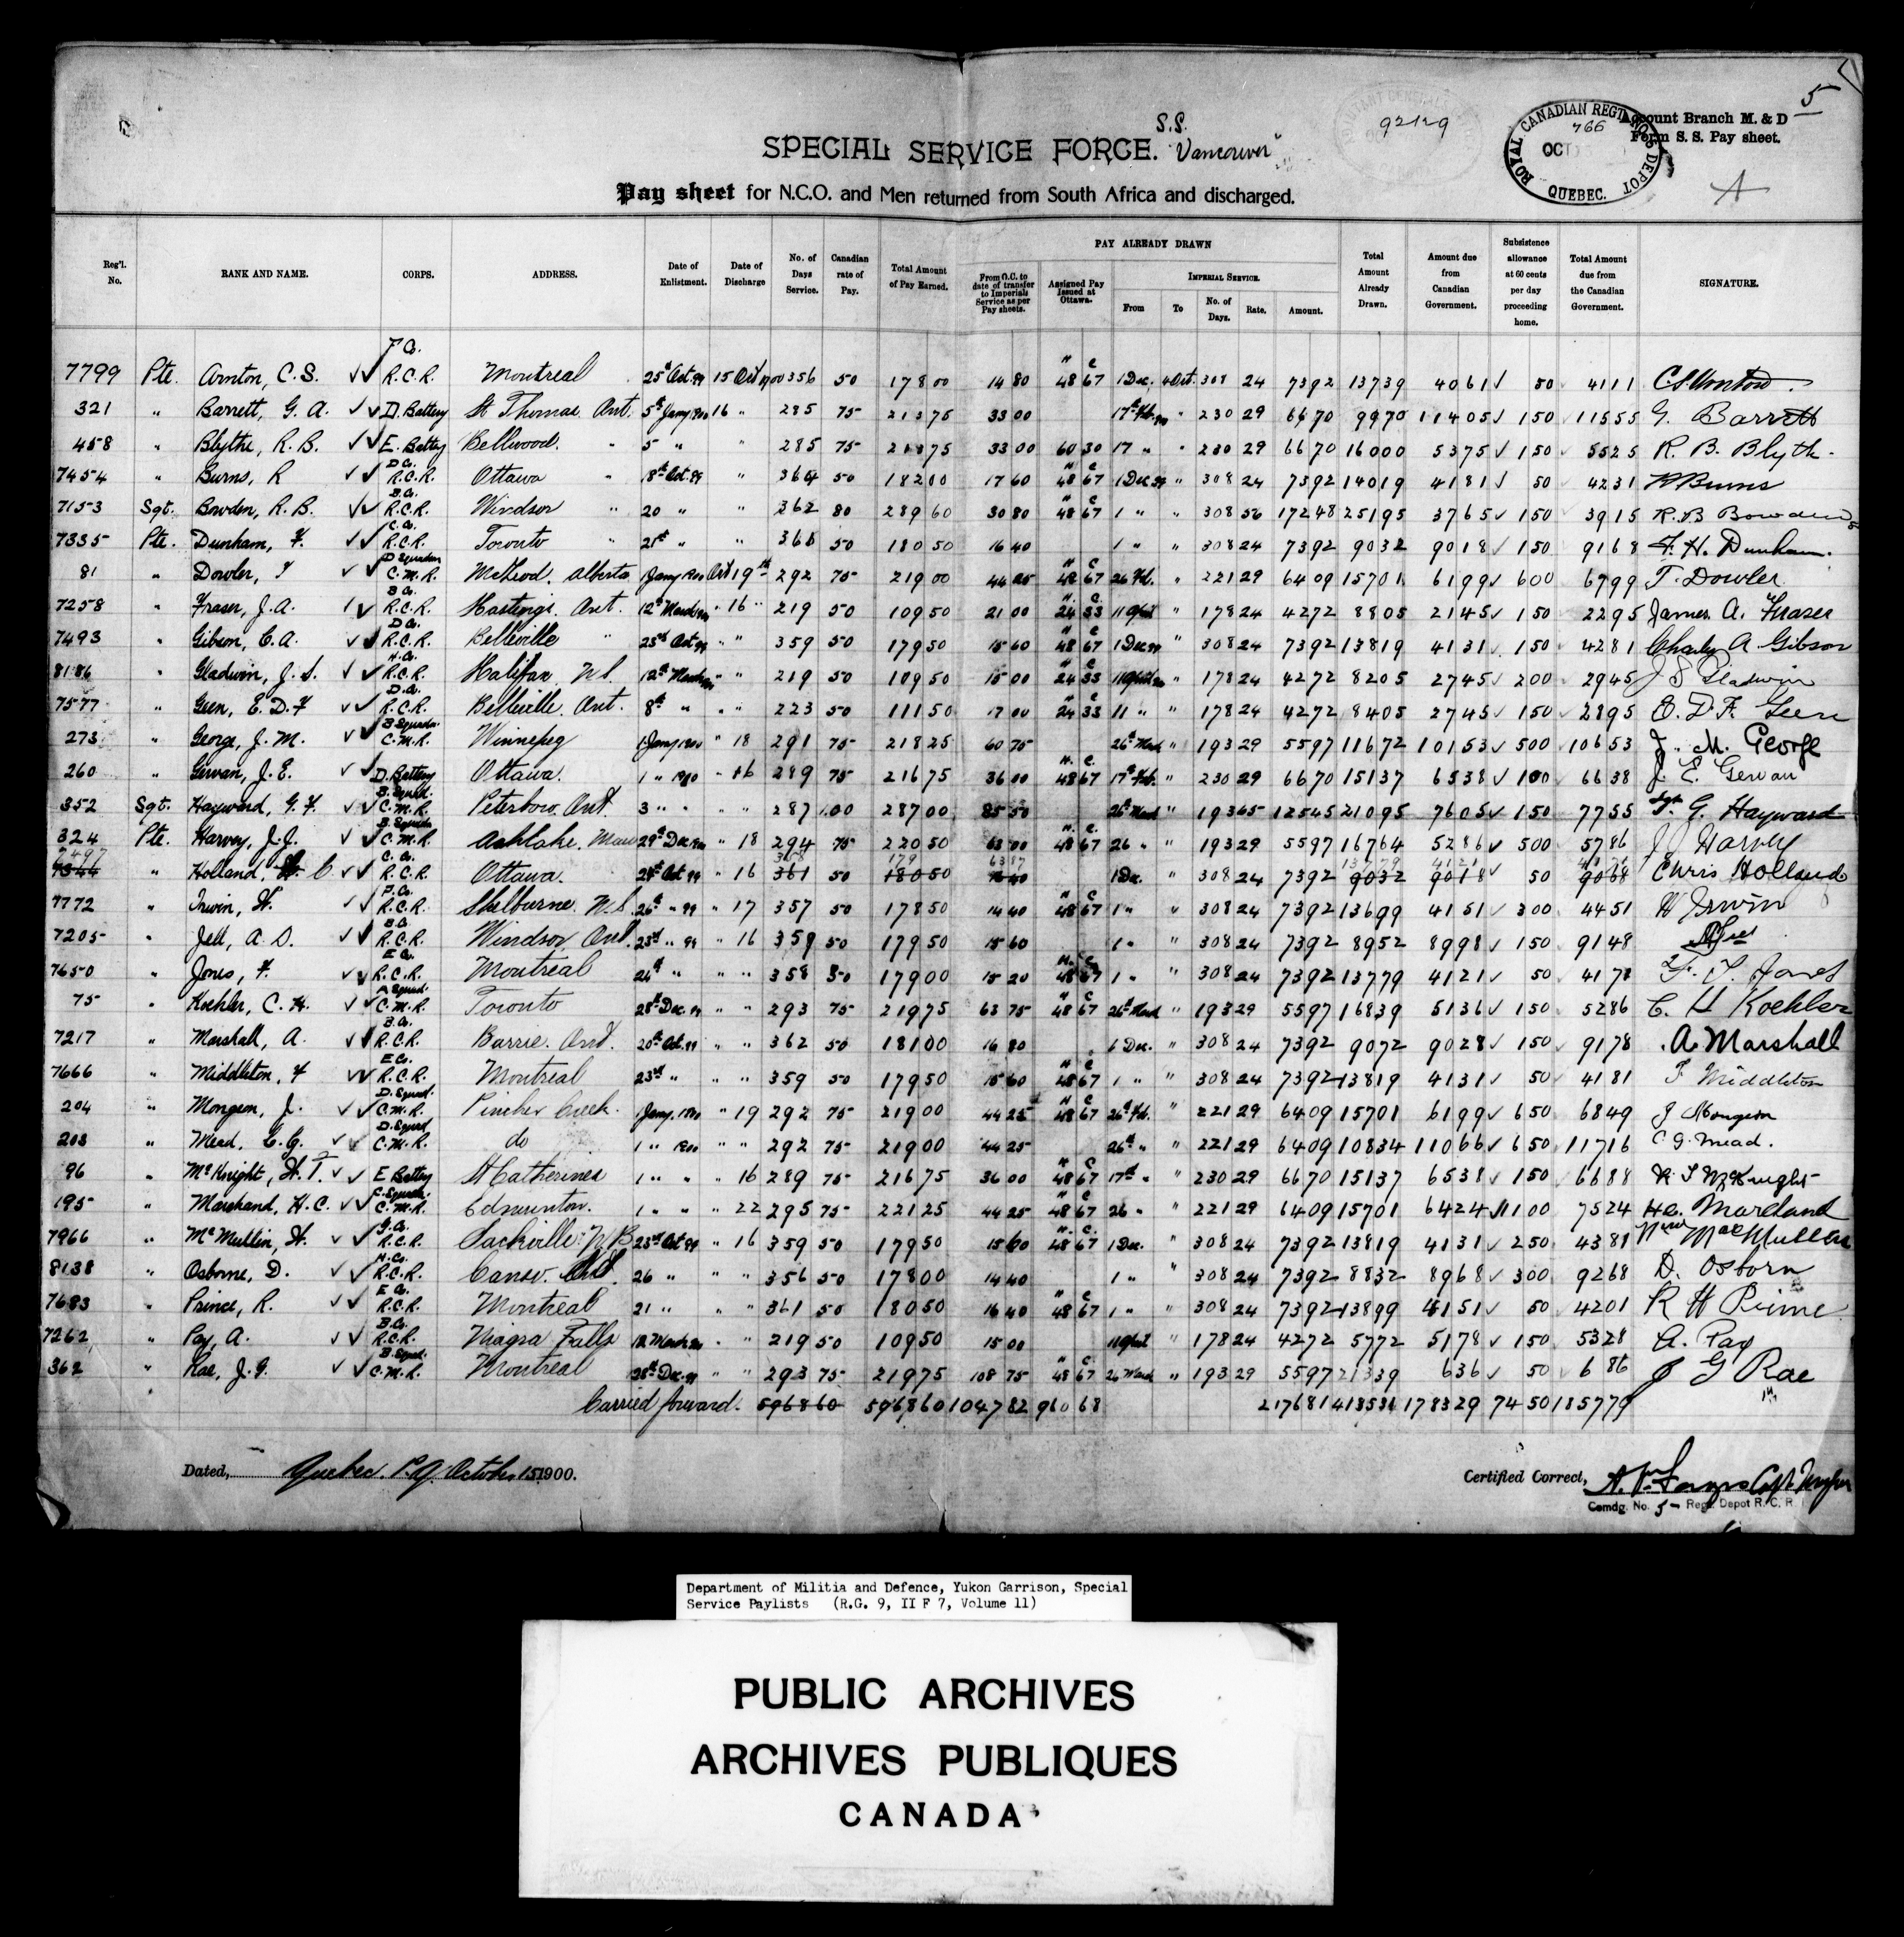 5
S.S.
92129
ROYAL CANADIAN REGT NO 5 DEPOT
766
OCT
QUEBEC.
Account Branch M. & D
Form S. S. Pay sheet.
A
SPECIAL SERVICE FORCE. "Vancouver"
Pay sheet for N.C.O. and Men returned from South Africa and discharged.
Reg'l. No. RANK AND NAME. CORPS. ADDRESS. Date of Enlistment. Date of Discharge No. of Days Service. Canadian rate of Pay. Total Amount of Pay Earned. PAY ALREADY DRAWN From O.C. to date of transfer to Imperials Service as per Pay sheets. Assigned Pay Issued at Ottawa. IMPERIAL SERVICE. From To No. of Days. Rate. Amount. Total Amount Already Drawn. Amount due from Canadian Government. Subsistence allowance at 60 cents per day proceeding home. Total Amount due from the Canadian Government. SIGNATURE.
7799 Pte. Arnton, C. S. F Co. R.C.R. Montreal 25th Oct. 99 15 Oct 1900 356 50 178 00 14 80 48 67 1 Dec. 4 Oct. 308 24 73 92 137 39 40 61 50 41 11
321 " Barrett, G. A. D. Battery St Thomas Ont. 5th Jany 1900 16 " 285 75 213 75 33 00 17th Feb. 00 " 230 29 66 70 99 70 114 05 1 50 115 55 G. Barrett
458 " Blythe, R. B. E. Battery Bellwood. " 5 " " 285 75 213 75 33 00 60 30 17 " " 230 29 66 70 160 00 53 75 1 50 55 25 R. B. Blyth.
7454 " Burns, R D Co. R.C.R. Ottawa " 18th Oct. 99 " 364 50 182 00 17 60 48 67 1 Dec 99 " 308 24 73 92 140 19 41 81 50 42 31 R Burns
7153 Sgt. Bowden, R. B. B. Co. R.C.R. Windsor " 20 " " 362 80 289 60 30 80 48 67 1 " " 308 56 172 48 251 95 37 65 1 50 39 15 R. B Bowden
7335 Pte. Dunham, F. C. Co. R.C.R. Toronto " 21st " " 361 50 180 50 16 40 1 " " 308 24 73 92 90 32 90 18 1 50 91 68 F. H. Dunham.
81 " Dowler, T D Squadron C.M.R. McLeod. Alberta 1 Jany 1900 Oct 19th 292 75 219 00 44 25 48 67 26 Feb. " 221 29 64 09 157 01 61 99 6 00 67 99 T. Dowler
7258 " Fraser, J. A. B Co. R.C.R. Hastings. Ont. 12th March 00 " 16 " 219 50 109 50 21 00 24 33 11 April " 178 24 42 72 88 05 21 45 1 50 22 95 James A. Frazer
7493 " Gibson, C. A. D Co. R.C.R. Belleville " 23rd Oct 99 " " 359 50 179 50 15 60 48 67 1 Dec 99 " 308 24 73 92 138 19 41 31 1 50 42 81 Charley A Gibson
8186 " Gladwin, J. S. H. Co. R.C.R. Halifax N.S. 12th March 00 " " 219 50 109 50 15 00 24 33 11 April 00 " 178 24 42 72 82 05 27 45 2 00 29 45 J S Gladwin
7577 " Geen, E. D. F D. Co. R.C.R. Belleville. Ont. 8th " " " 223 50 111 50 17 00 24 33 11 " " 178 24 42 72 84 05 27 45 1 50 28 95 E. D. F. Geen
273 " George, J. M. B Squadn. C.M.R. Winnepeg 1 Jany 1900 " 18 291 75 218 25 60 75 26th Mch " 193 29 55 97 116 72 101 53 5 00 106 53 J. M. George
260 " Gervan, J. E. D. Battery Ottawa. 1 " 1900 " 16 289 75 216 75 36 00 48 67 17th Feb. " 230 29 66 70 151 37 65 38 1 00 66 38 J. E. Gervan
352 Sgt. Hayward, G. F. B. Squad. C.M.R. Peterboro. Ont. 3 " " " " 287 1.00 287 00 85 50 26th March " 193 65 125 45 210 95 76 05 1 50 77 55 Sgt. G. Hayward
324 Pte. Harvey, J. J. B. Squadn C.M.R. Ashlake, Man 29th Dec. " 18 294 75 220 50 63 00 48 67 26 " " 193 29 55 97 167 64 52 86 5 00 57 86 J J Harvey
7344 " Holland, C. C. Co. R.C.R. Ottawa. Oct 99 " 16 361 50 180 50 1 Dec. " 308 24 73 92 90 32 90 18 50 90 68 Chris Holland
7772 " Irwin, H. F. Co. R.C.R. Shelburne. N.S. 26th " 99 " 17 357 50 178 50 14 40 48 67 1 " " 308 24 73 92 136 99 41 51 3 00 44 51 H Irwin
7205 " Jell, A. S. B. Co. R.C.R. Windsor, Ont. 23rd " 99 " 16 359 50 179 50 15 60 1 " " 308 24 73 92 89 52 89 98 1 50 91 48
7650 " Jones, F. E Co. R.C.R. Montreal 24th " " " " 358 50 179 00 15 20 48 67 1 " " 308 24 73 92 137 79 41 21 50 41 71
75 " Koehler, C. H. A Squad. C.M.R. Toronto 28th Dec. 99 " " 293 75 219 75 63 75 48 67 26th March " 193 29 55 97 168 39 51 36 1 50 52 86 C. H Koehler
7217 " Marshall, A. B. Co. R.C.R. Barrie. Ont. 20th Oct. 99 " " 362 50 181 00 16 80 1 Dec. " 308 24 73 92 90 72 90 28 1 50 91 78 A. Marshall
7666 " Middleton, F E Co. R.C.R. Montreal 23rd " " " 359 50 179 50 15 60 48 67 1 " " 308 24 73 92 138 19 41 31 50 41 81 F Middleton
204 " Mongeon, J. D. Squad. C.M.R. Pincher Creek. 1 Jany. 1900 " 19 292 75 219 00 44 25 48 67 26th Feb. " 221 29 64 09 157 01 61 99 6 50 68 49 J Mongeon
203 " Mead, C. G. D. Squad C.M.R. do 1 " 1900 " " 292 75 219 00 44 25 26th " " 221 29 64 09 108 34 110 66 6 50 117 16 C G. Mead.
96 " McKnight, W. T. E Battery St Catherines 1 " " " 16 289 75 216 75 36 00 48 67 17th " " 230 29 66 70 151 37 65 38 1 50 66 88
195 " Marshand, H. C. C. Squadn. C.M.R. Edmunton. 1 " " " 22 295 75 221 25 44 25 48 67 26 " " 221 29 64 09 157 01 64 24 11 00 75 24
7966 " McMullin, W. G. Co. R.C.R. Sackville N B 23rd Oct 99 " 16 359 50 179 50 15 60 48 67 1 Dec. " 308 24 73 92 138 19 41 31 2 50 43 81 MacMullin
8138 " Osborne, D. H. Co. R.C.R. Canso. 26 " " " 356 50 178 00 14 40 1 " " 308 24 73 92 88 32 89 68 3 00 92 68 D. Osborn
7683 " Prince, R. E Co. R.C.R. Montreal 21 " " " 361 50 180 50 16 40 48 67 1 " " 308 24 73 92 138 99 41 51 50 42 01 R H Prince
7262 " Pay, A. B. Co. R.C.R. Niagra Falls 12 March 00 " 219 50 109 50 15 00 11 April " 178 24 42 72 57 72 51 78 1 50 53 28 A. Pay
362 " Rae, J. G. B. Squad. C.M.R. Montreal 28th Dec. 99 " " 293 75 219 75 108 75 48 67 26 March " 193 29 55 97 213 39 6 36 50 6 86 J G Rae
Carried forward. 5968 60 5968 60 1047 82 960 68 2176 81 4185 31 1783 29 74 50 1857 79
Dated, Quebec. P.Q. October 15 1900.
Certified Correct,
Comdg. No. 5 Regt. Depot R. C. R.
Department of Militia and Defence, Yukon Garrison, Special
Service Paylists (R.G. 9, II F 7, Volume 11)
PUBLIC ARCHIVES
ARCHIVES PUBLIQUES
CANADA